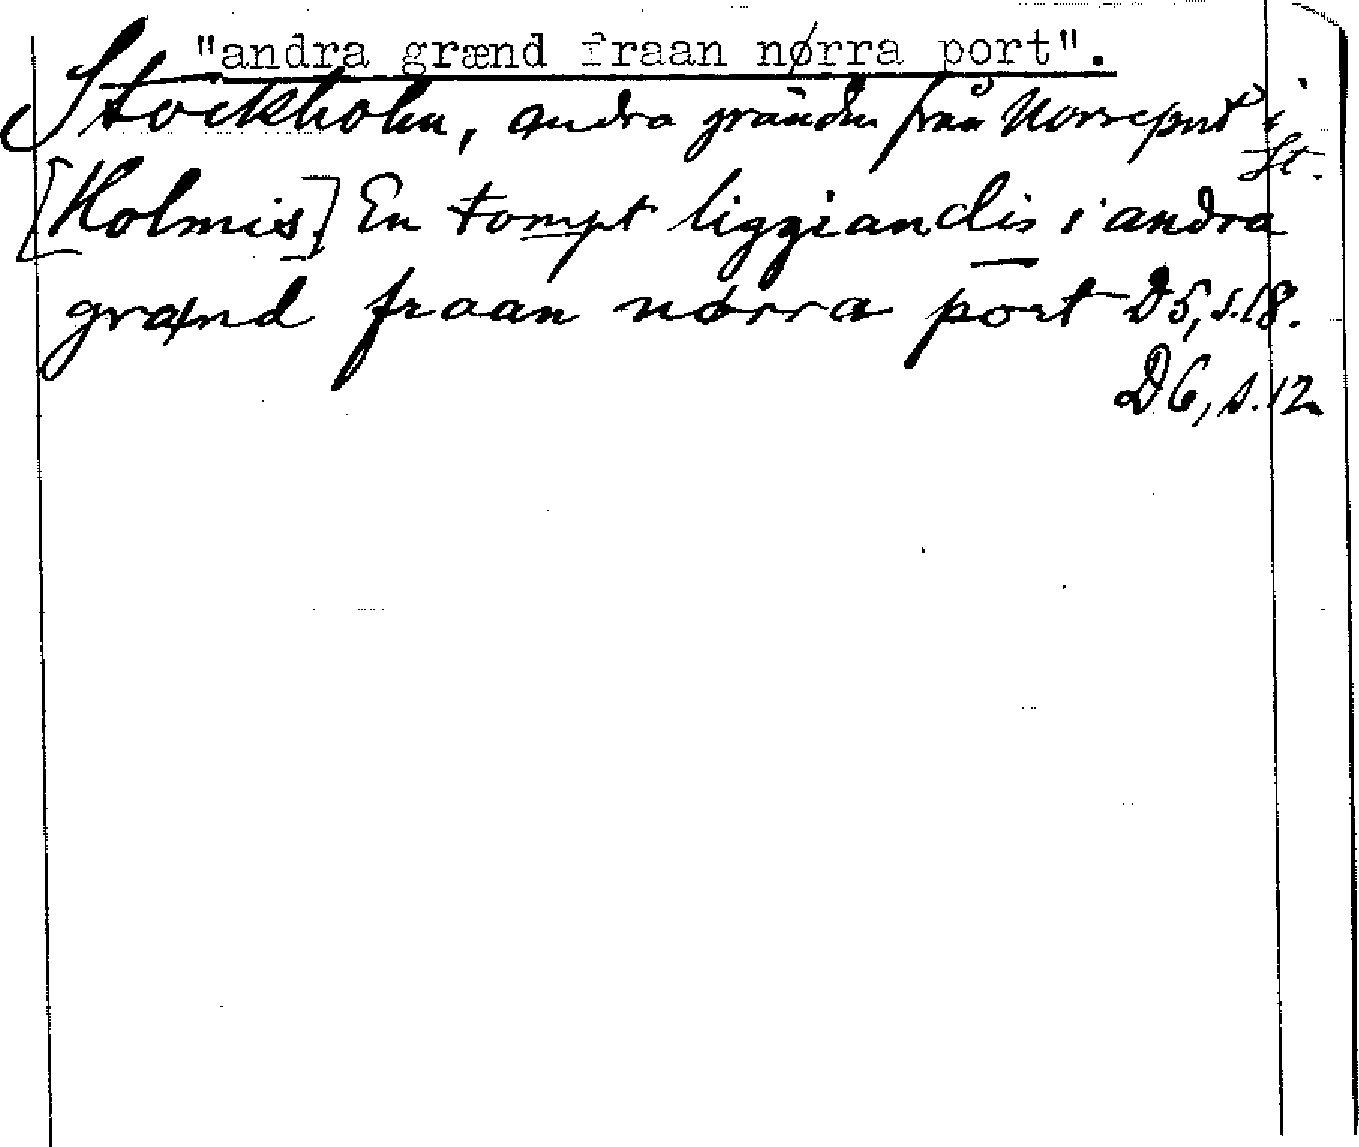 "andra grænd fraan nørra port".
Stockholm, andra gränden från Norreport i
St.
[Holmis] En tompt liggiandis i andra
grænd fraan nørra port D5, s. 18.
D6, s. 12